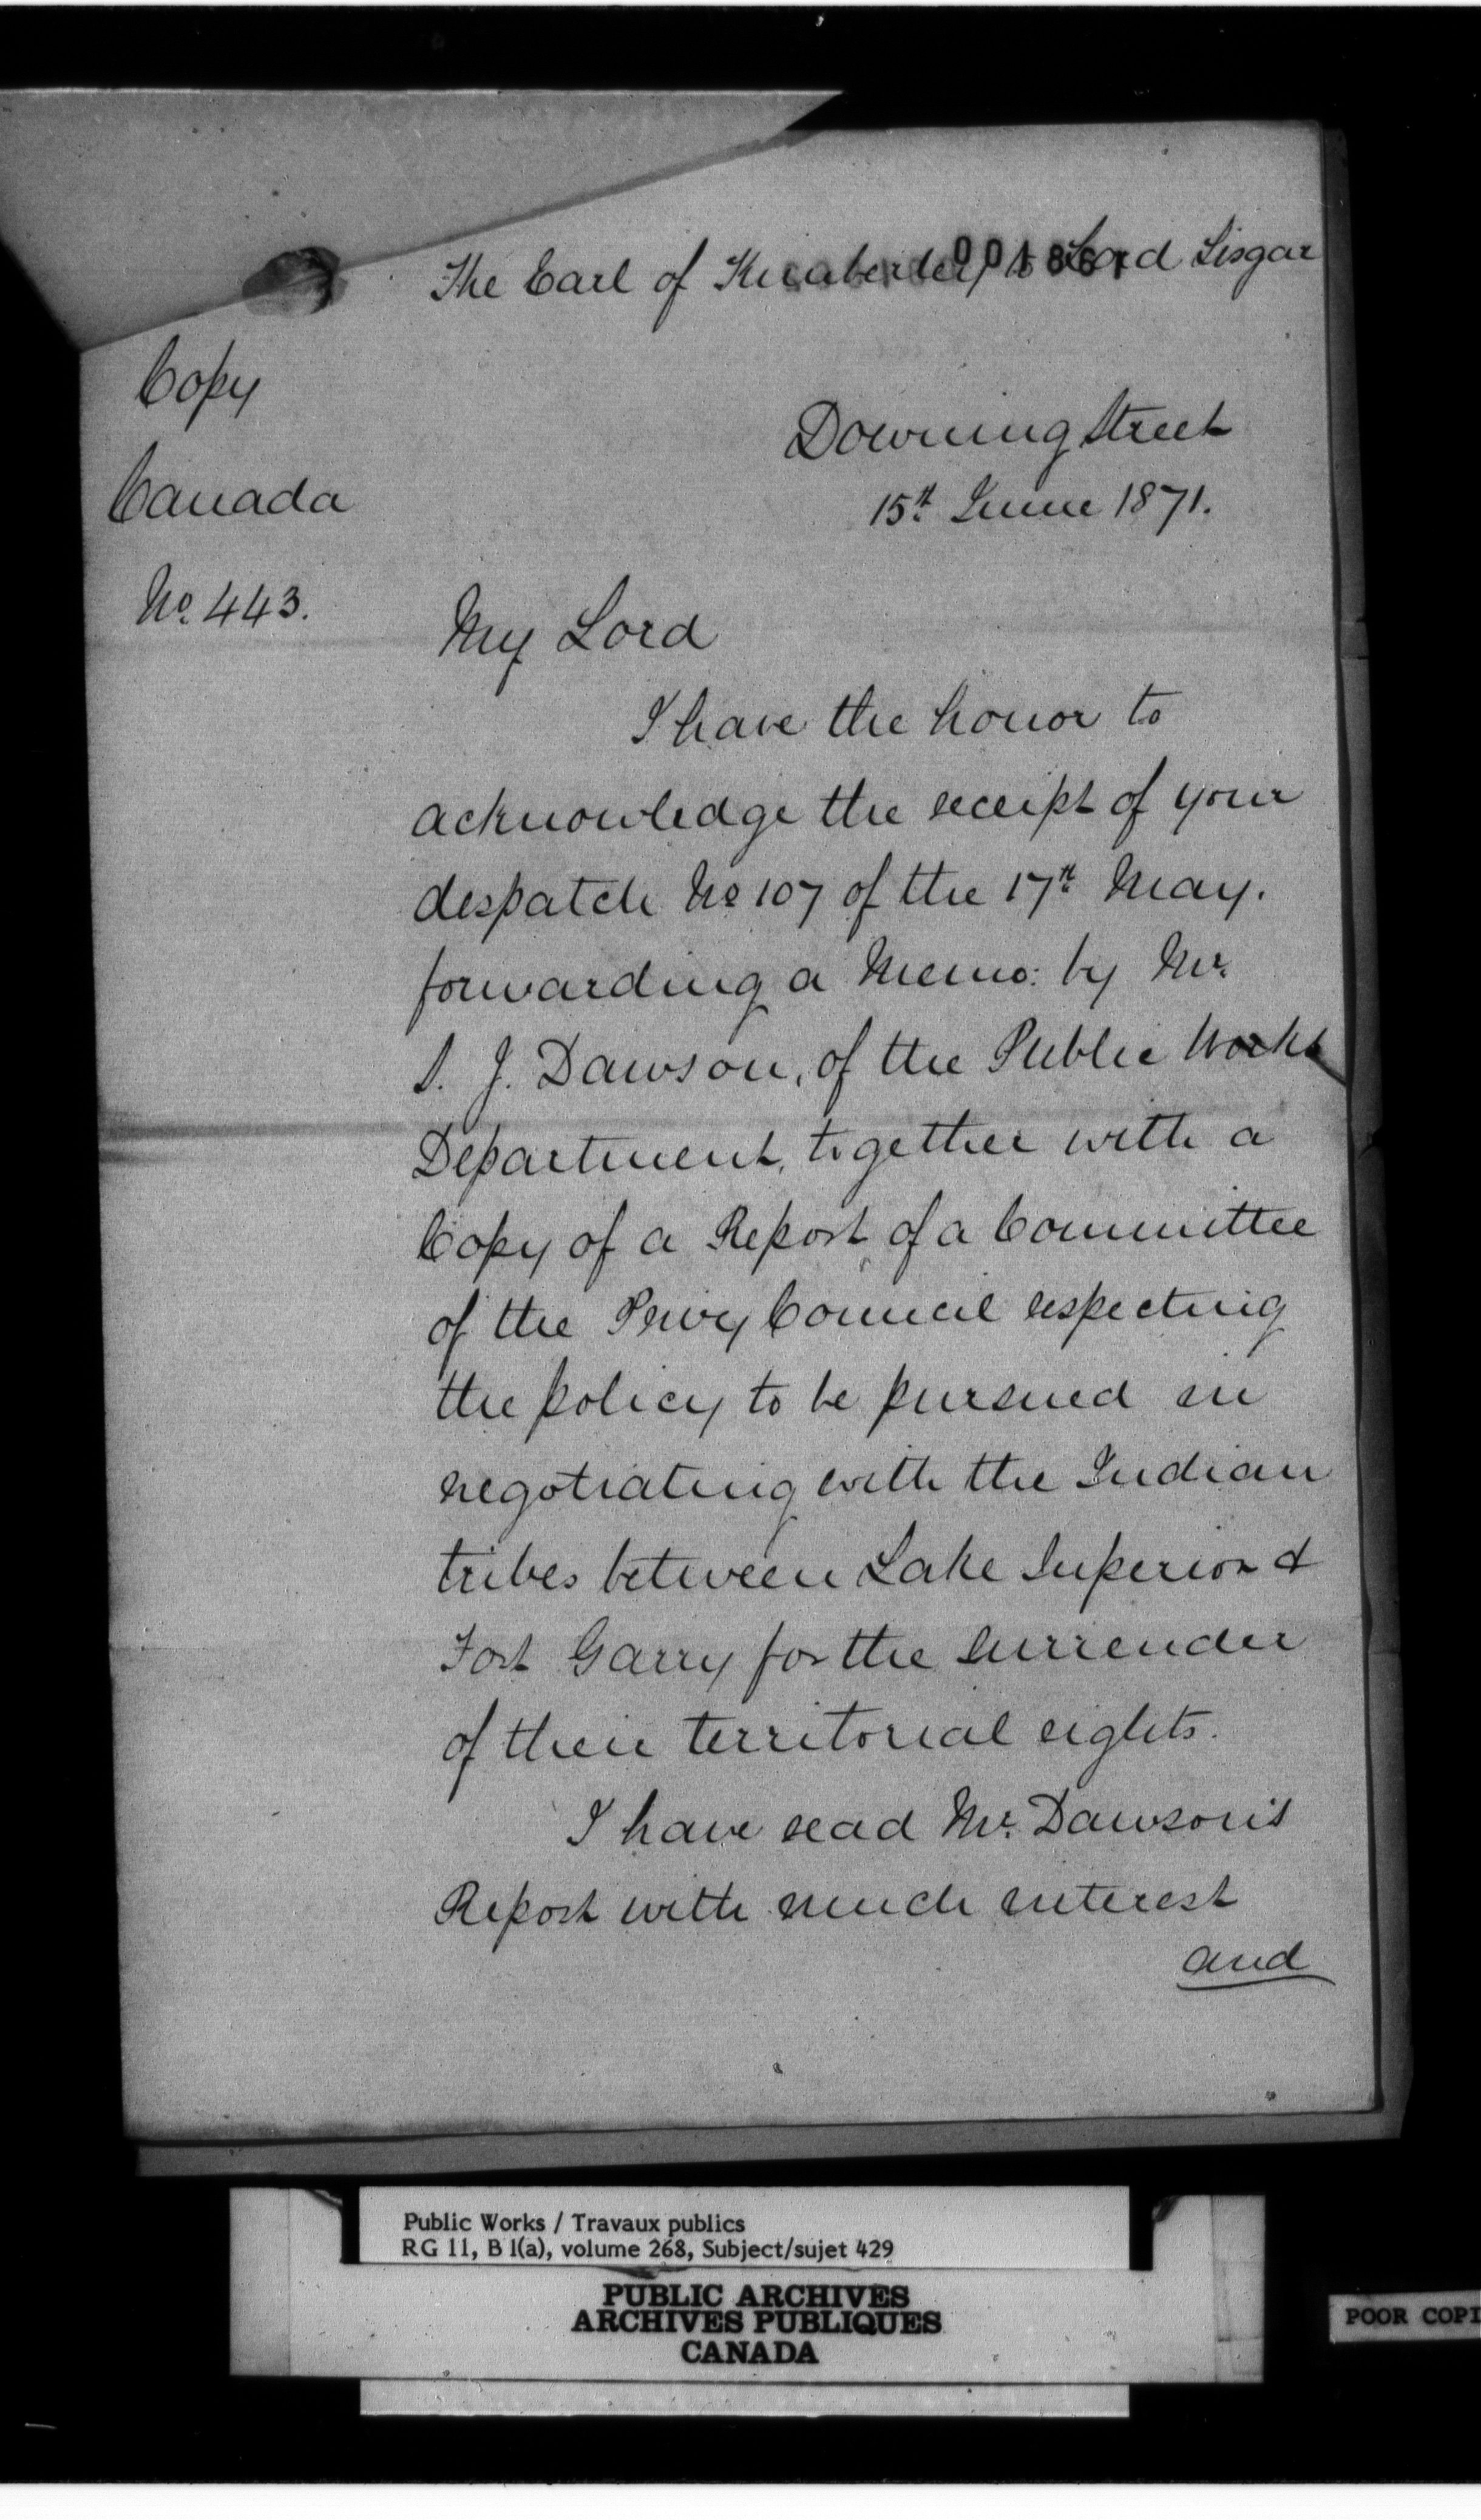 The Earl of Kimberley to Lord Lisgar
Copy
Canada
No. 443.
Downing Street
15th June 1871.
My Lord
I have the honor to
acknowledge the receipt of your
despatch No 107 of the 17th May.
forwarding a Memo: by Mr.
S. J. Dawson, of the Public Works
Department, together with a
Copy of a Report of a Committee
of the Privy Council respecting
the policy to be pursued in
negotiating with the Indian
tribes between Lake Superior &
Fort Garry for the surrender
of their territorial rights.
I have read Mr. Dawson's
Report with much interest
and
Public Works / Travaux publics
RG 11, B 1(a), volume 268, Subject/sujet 429
PUBLIC ARCHIVES
ARCHIVES PUBLIQUES
CANADA
POOR COPI